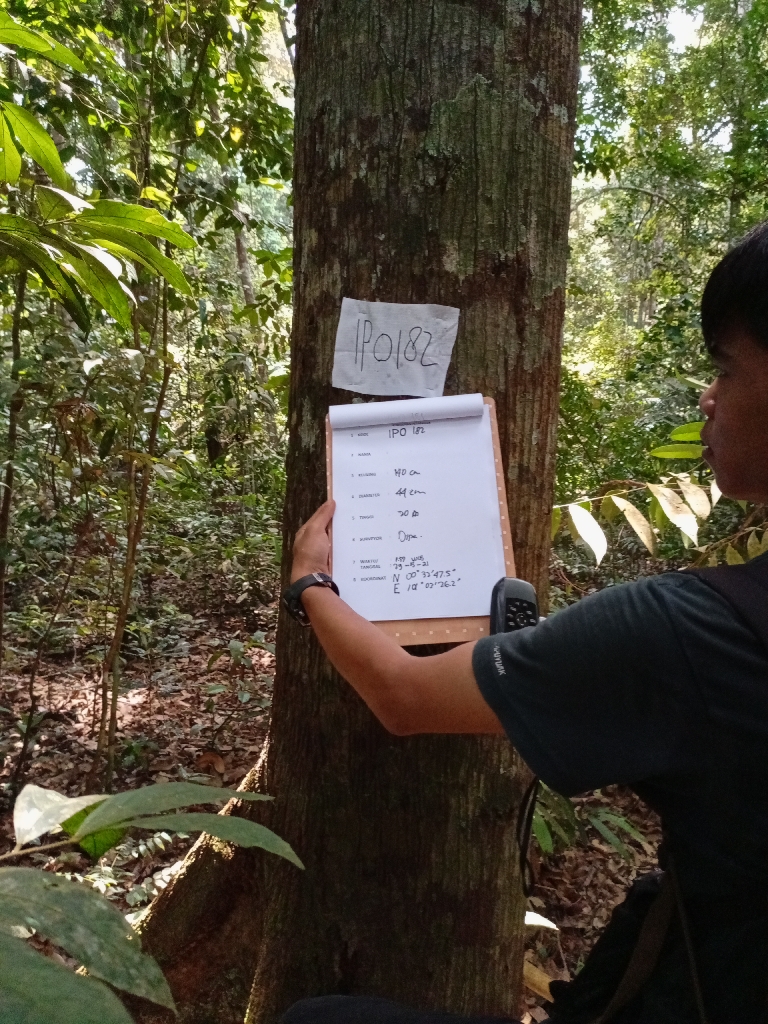 IPO182
1. KODE IPO 182
2. NAMA
3. KELILING 140 cm
4. DIAMETER 44 cm
5. TINGGI 20 m
6. SURVEYOR
7. WAKTU WIB
TANGGAL
8. KOORDINAT N 00° 32' 47.5"
E 101° 02' 26.2"